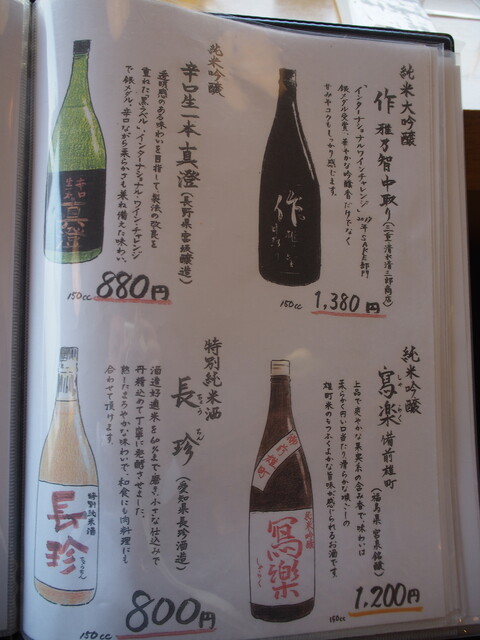 純米大吟醸
作 雅乃智中取り(三重・清水清三郎商店)
"インターナショナルワインチャレンジ"2017年SAKE部門
銀メダル受賞、華やかな吟醸香だけでなく
キレやコクもしっかり感じます。
作
150cc 1,380円
純米吟醸
辛口生一本 真澄(長野県宮坂醸造)
透明感のある味わいを目指して製法の改良を
重ねた「黒ラベル」、インターナショナル・ワイン・チャレンジ
で銀メダル、辛口ながら柔らかさも兼ね備えた味わい。
辛口
生一本
真澄
150cc 880円
純米吟醸
寫楽 備前雄町(福島県宮泉銘醸)
しゃらく
上品で爽やかな果実系の含み香で、味わいは
柔らかく円い口当たり、滑らかな頃い一の
雄町米のもつふくよかな旨味が感じられるお酒です。
備前雄町
純米吟醸
寫樂
150cc 1,200円
特別純米酒
長珍(愛知県長珍酒造)
ちょうちん
酒造好適米を60%まで磨き、小さな仕込みで
丹精込めて丁寧に発酵させました。
熟したまろやかな味わいで、和食にも肉料理にも
合わせて頂けます。
特別純米酒
長珍
ちょうちん
150cc 800円